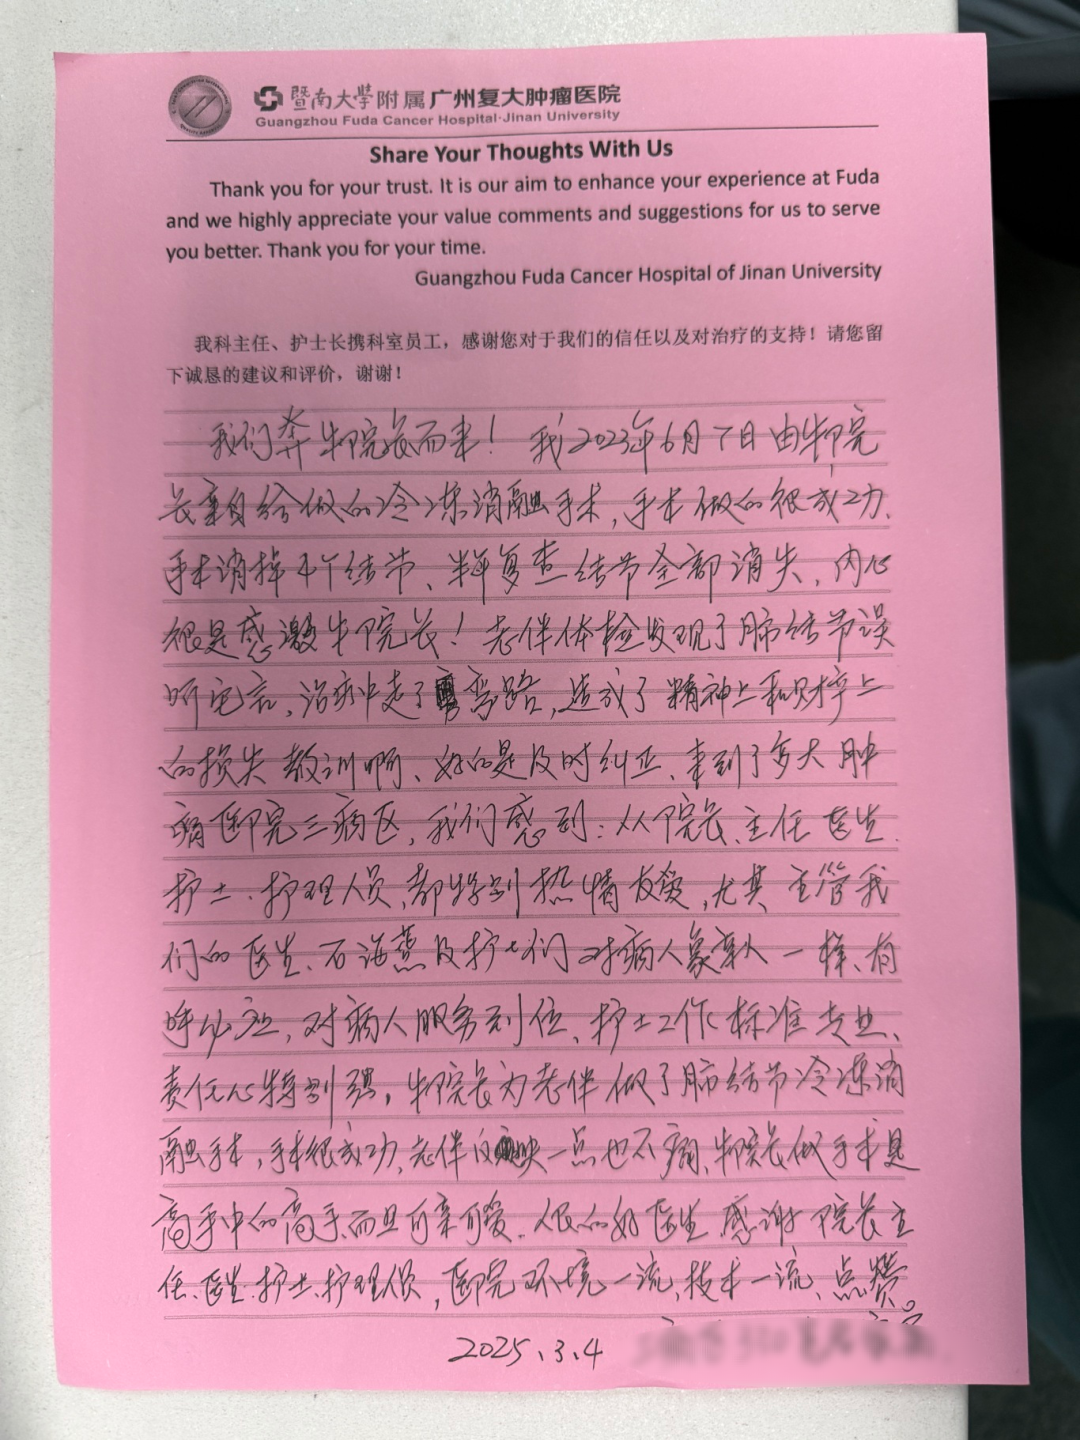 暨南大学附属广州复大肿瘤医院
Guangzhou Fuda Cancer Hospital·Jinan University
Share Your Thoughts With Us
Thank you for your trust. It is our aim to enhance your experience at Fuda
and we highly appreciate your value comments and suggestions for us to serve
you better. Thank you for your time.
Guangzhou Fuda Cancer Hospital of Jinan University
我科主任、护士长携科室员工，感谢您对于我们的信任以及对治疗的支持！请您留
下诚恳的建议和评价，谢谢！
我们奔牛院长而来！我2023年6月7日由牛院
长亲自给做的冷冻消融手术，手术做的很成功、
手术消掉4个结节、半年复查结节全部消失，内心
很是感激牛院长！老伴体检发现了肺结节误
听宅言，治病中走了弯路，造成了精神上和财产上
的损失教训啊、好的是及时纠正、来到了复大肿
瘤医院三病区，我们感到：从院长、主任医生、
护士、护理人员、都特别热情友爱，尤其主管我
们的医生、石海燕及护士们对病人象亲人一样、有
呼必应，对病人服务到位、护士工作标准专业、
责任心特别强，牛院长为老伴做了肺结节冷冻消
融手术，手术很成功，老伴一点也不痛、牛院长做手术是
高手中的高手、而且可亲可爱、人民的好医生感谢院长主
任、医生、护士、护理人员，医院环境一流、技术一流、点赞。
2025、3、4